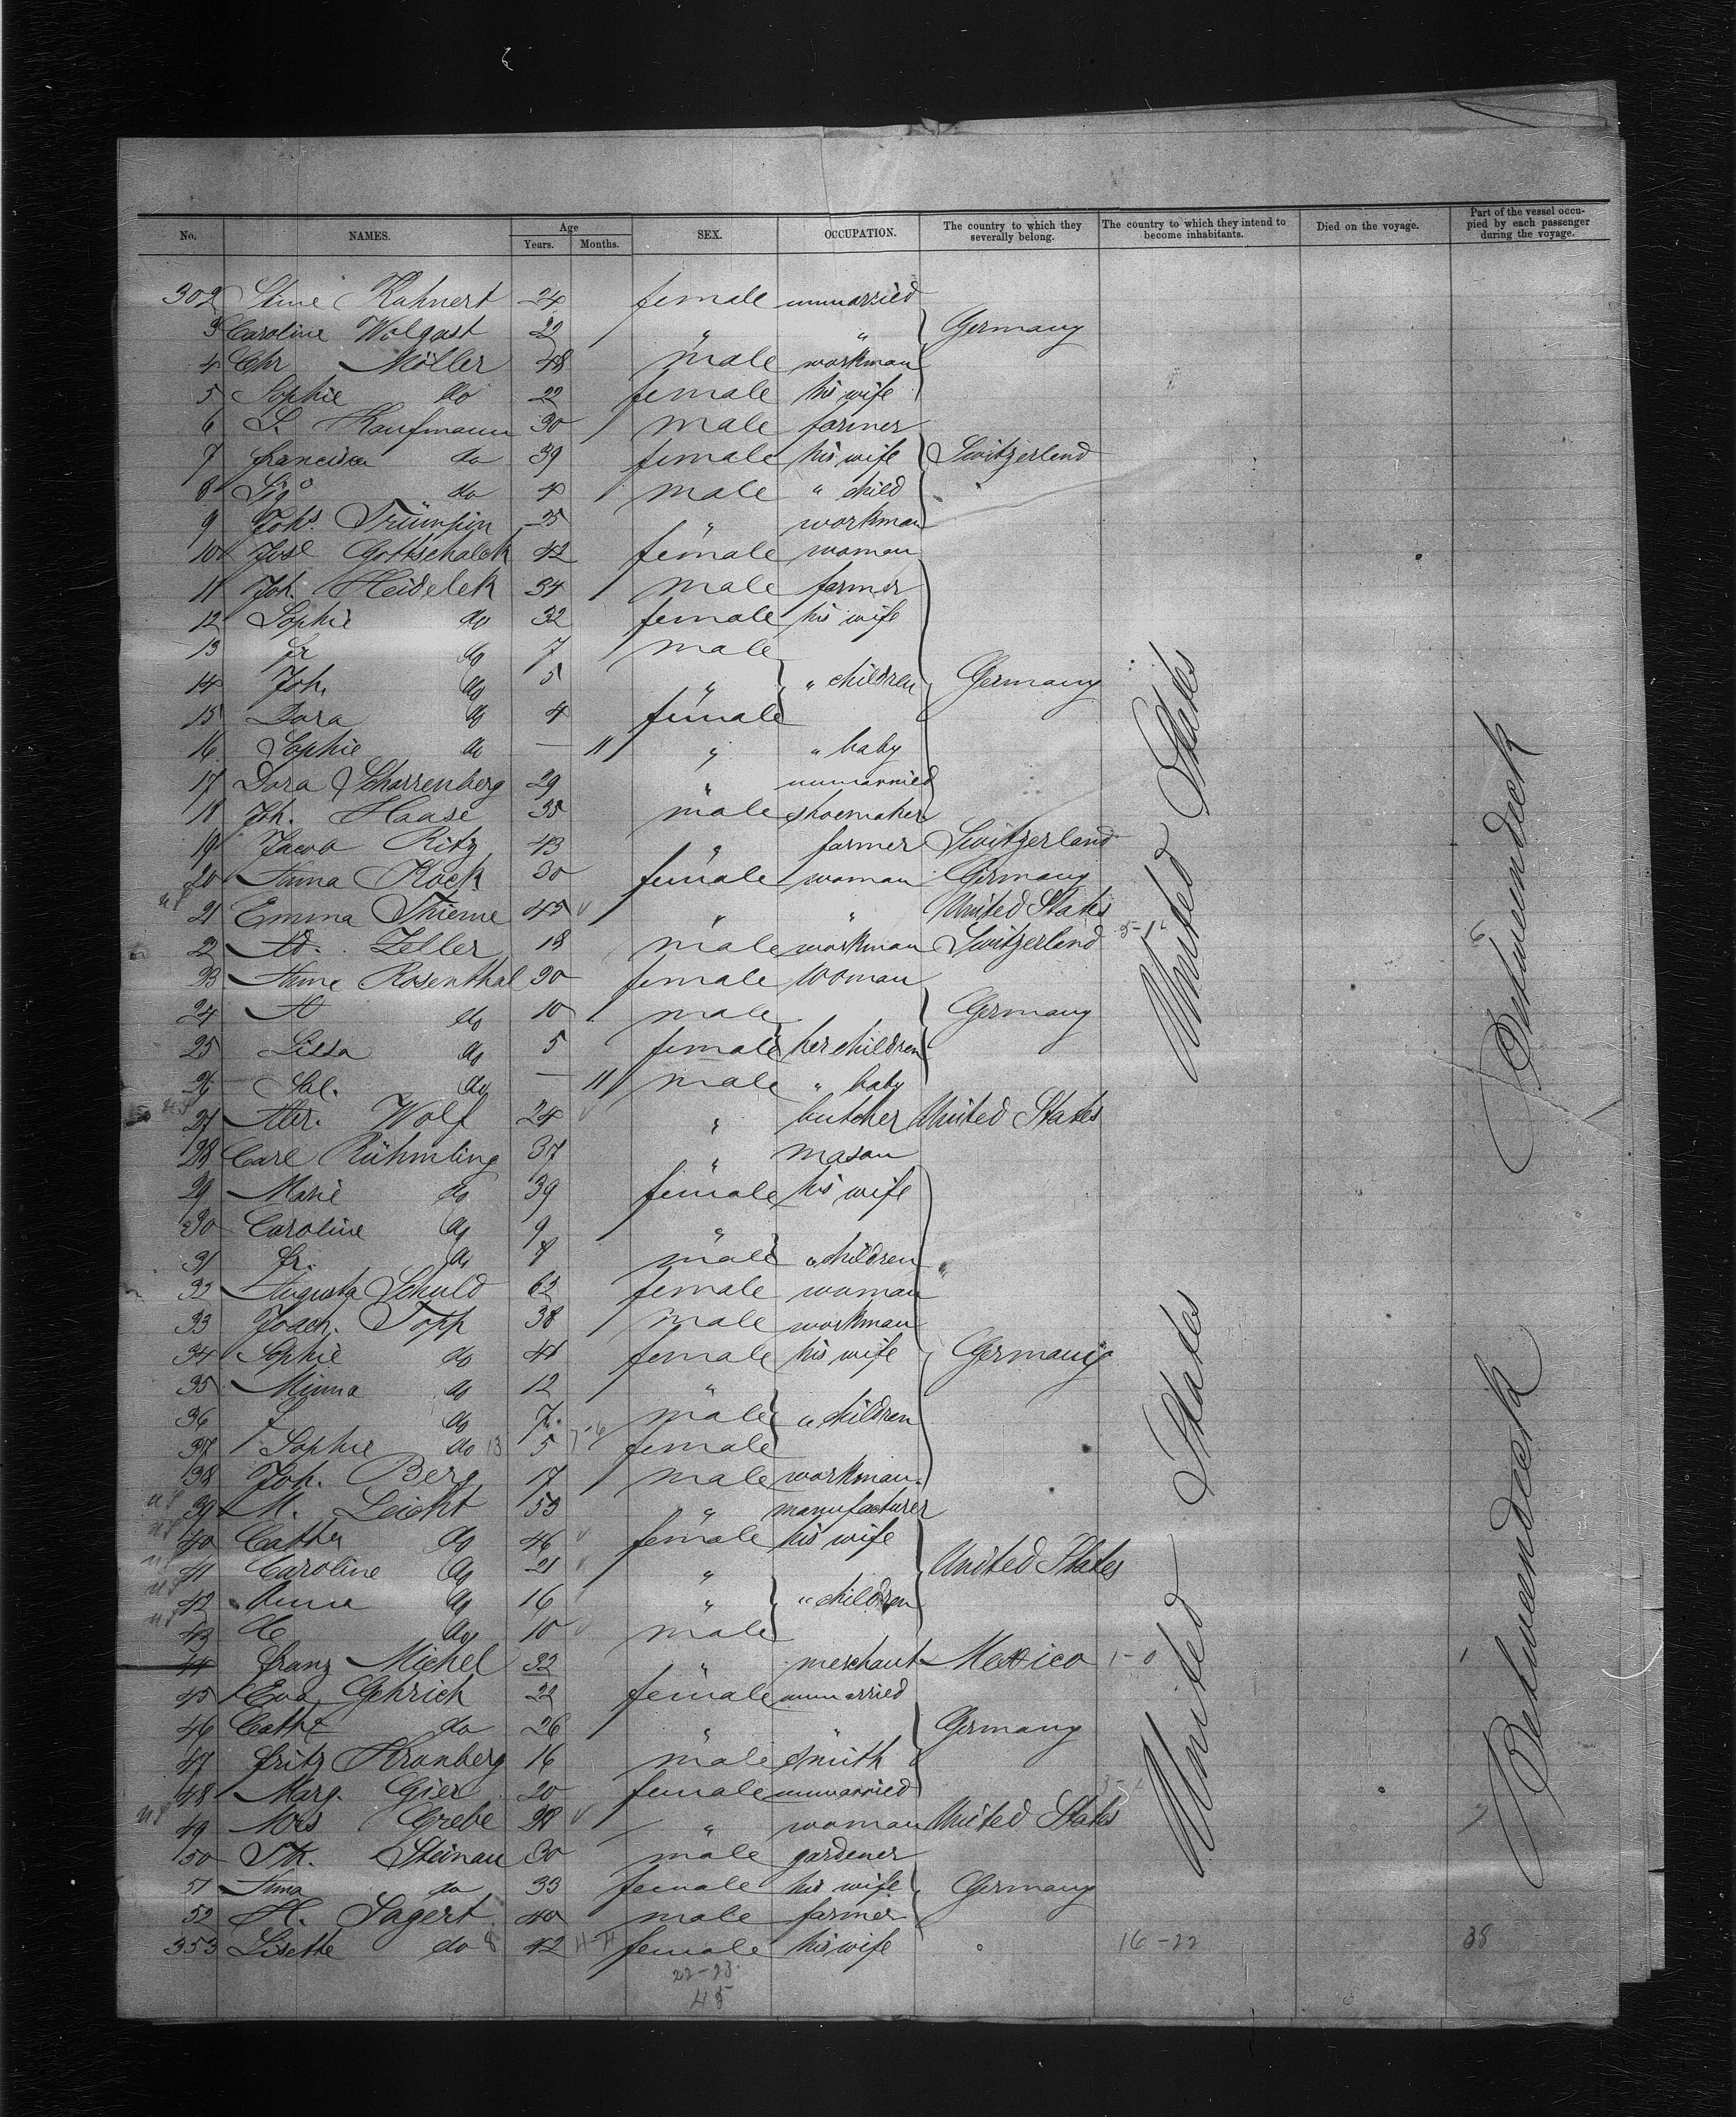 No. NAMES. Age Years. Months. SEX. OCCUPATION. The country to which they severally belong. The country to which they intend to become inhabitants. Died on the voyage. Part of the vessel occupied by each passenger during the voyage.
302 Stine Kuhnert 24 female unmarried
3 Caroline Wolgast 22 " " Germany
4 Chr Möller 48 male workman
5 Sophie do 22 female his wife
6 L. Kaufmann 30 male farmer
7 francisca do 39 female his wife Switzerland
8 do 4 male " child
9 Johs. Trümpin 25 " workman
10 Josl Gottschalck 42 female woman
11 Joh. Heidelck 34 male farmer
12 Sophie do 32 female his wife
13 fr do 7 male
14 Joh. do 5 " " children Germany
15 Dora do 4 female
16 Sophie do — 11 " " baby
17 Dora Scharrenberg 29 " unmarried
18 Joh. Haase 35 male shoemaker
19 Jacob Ritz 43 " farmer Switzerland
20 Anna Kock 30 female woman Germany
21 Emma Thieme 45 " " United States
22 Ad. Zeller 18 male workman Switzerland
23 Anne Rosenthal 30 female woman
24 A do 10 male Germany
25 do 5 female her children
26 Sal. do — 11 male " baby
27 Wolf 24 " butcher United States
28 Carl Rühmling 37 " mason
29 Marie do 39 female his wife
30 Caroline do 9 "
31 fr. do 7 male " children
32 Augusta Schuld 62 female woman
33 Joach. Topp 38 male workman
34 Sophie do 41 female his wife Germany
35 Minna do 12 "
36 f do 7 male " children
37 Sophie do 13 5 7-6 female
38 Joh. Berg 17 male workman.
39 M. Leicht 53 " manufacturer
40 Cathr do 46 female his wife
41 Caroline do 21 " United States
42 Anna do 16 " " children
43 do 10 male
44 franz Michel 32 " merchant Mexico 1-0 1
45 Eva Gehrich 22 female unmarried
46 Cathr do 26 " " Germany
47 fritz Kronberg 16 male smith
48 Marg. Gier 20 female unmarried
49 Mrs Grebe 38 " woman United States
50 Steinau 30 male gardener
51 Anna do 33 female his wife Germany
52 H. Sagert 40 male farmer
353 Lisette do 8 42 female his wife 16-22 38
22-23
45
United States
United States
Betweendeck
Betweendeck